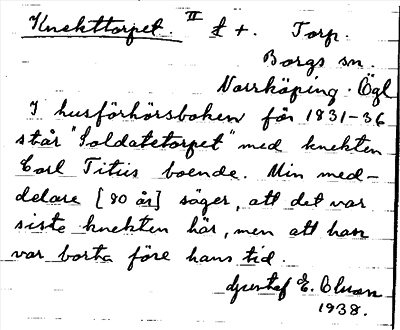 Knekttorpet. II † +. Torp.
Borgs sn.
Norrköping. Ögl
I husförhörsboken för 1831-36
står "Soldatetorpet" med knekten
Carl Titus boende. Min med-
delare [80 år] säger, att det var
siste knekten här, men att han
var borta före hans tid.
Gustaf E. Olsson
1938.